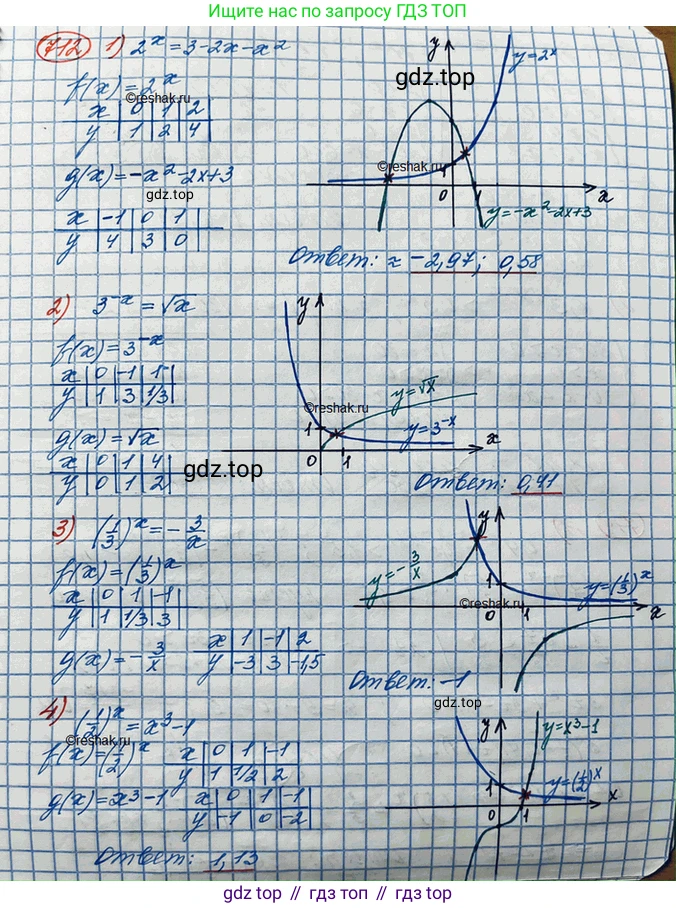 Ищите нас по запросу ГДЗ ТОП
712 1) 2^x = 3 - 2x - x²
f(x) = 2^x
x | 0 | 1 | 2
y | 1 | 2 | 4
g(x) = -x² - 2x + 3
x | -1 | 0 | 1
y | 4 | 3 | 0
y
y = 2^x
1
0
1
x
y = -x² - 2x + 3
Ответ: ≈ -2,97; 0,58
2) 3^-x = √x
f(x) = 3^-x
x | 0 | -1 | 1
y | 1 | 3 | 1/3
g(x) = √x
x | 0 | 1 | 4
y | 0 | 1 | 2
y
y = √x
y = 3^-x
1
0
1
x
Ответ: 0,41
3) (1/3)^x = -3/x
f(x) = (1/3)^x
x | 0 | 1 | -1
y | 1 | 1/3 | 3
g(x) = -3/x
x | 1 | -1 | 2
y | -3 | 3 | -1,5
y
y = -3/x
1
y = (1/3)^x
0
1
x
Ответ: -1
4) (1/2)^x = x³ - 1
f(x) = (1/2)^x
x | 0 | 1 | -1
y | 1 | 1/2 | 2
g(x) = x³ - 1
x | 0 | 1 | -1
y | -1 | 0 | -2
y
y = x³ - 1
y = (1/2)^x
1
0
1
x
Ответ: 1,13
©reshak.ru
gdz.top
©reshak.ru
gdz.top
©reshak.ru
gdz.top
©reshak.ru
gdz.top
©reshak.ru
gdz.top // гдз топ // gdz.top